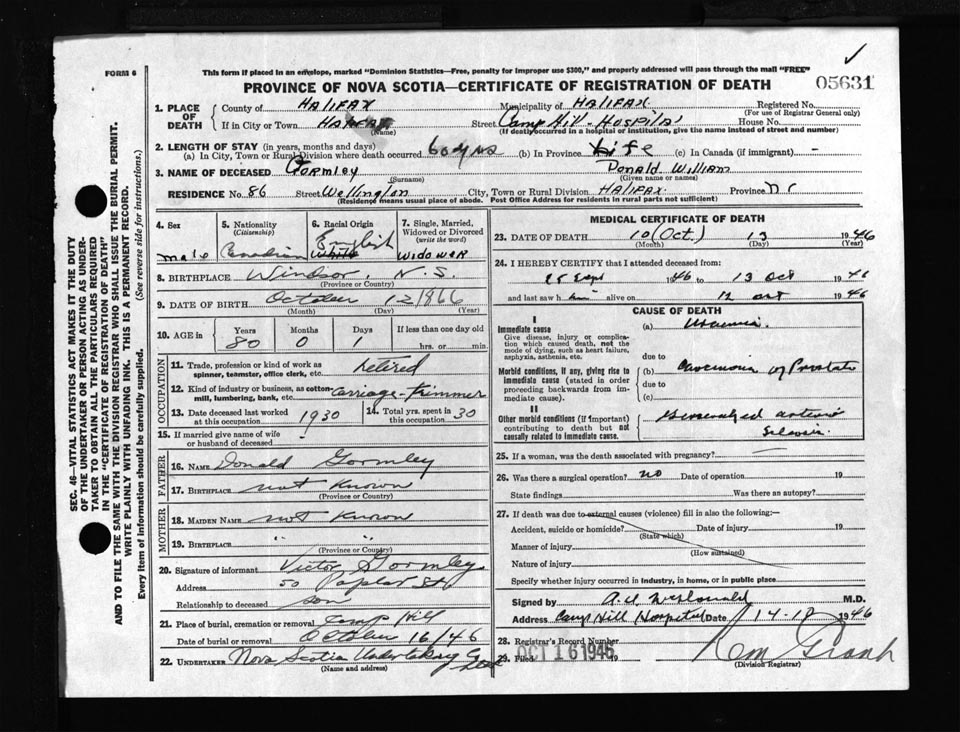 FORM 6
This form if placed in an envelope, marked "Dominion Statistics—Free, penalty for improper use $300," and properly addressed will pass through the mail "FREE"
05631
PROVINCE OF NOVA SCOTIA—CERTIFICATE OF REGISTRATION OF DEATH
SEC. 46—VITAL STATISTICS ACT MAKES IT THE DUTY
OF THE UNDERTAKER OR PERSON ACTING AS UNDER-
TAKER TO OBTAIN ALL THE PARTICULARS REQUIRED
IN THE "CERTIFICATE OF REGISTRATION OF DEATH"
AND TO FILE THE SAME WITH THE DIVISION REGISTRAR WHO SHALL ISSUE THE BURIAL PERMIT.
WRITE PLAINLY WITH UNFADING INK. THIS IS A PERMANENT RECORD.
Every item of information should be carefully supplied. (See reverse side for instructions.)
1. PLACE OF DEATH County of HALIFAX Municipality of HALIFAX Registered No.
(For use of Registrar General only)
If in City or Town HALIFAX (Name) Street Camp Hill - Hospital House No.
(If death occurred in a hospital or institution, give the name instead of street and number)
2. LENGTH OF STAY (in years, months and days)
(a) In City, Town or Rural Division where death occurred 60 yrs (b) In Province Life (c) In Canada (if immigrant) —
3. NAME OF DECEASED Gormley Donald William
(Surname) (Given name or names)
RESIDENCE No. 86 Street Wellington City, Town or Rural Division HALIFAX Province
(Residence means usual place of abode. Post Office Address for residents in rural parts not sufficient)
4. Sex 5. Nationality (Citizenship) 6. Racial Origin 7. Single, Married, Widowed or Divorced (write the word)
male Canadian English White Widower
8. BIRTHPLACE Windsor, N.S.
(Province or Country)
9. DATE OF BIRTH October 12/1866
(Month) (Day) (Year)
10. AGE in Years Months Days If less than one day old
80 0 1 hrs. or min.
OCCUPATION
11. Trade, profession or kind of work as spinner, teamster, office clerk, etc. Retired
12. Kind of industry or business, as cotton-mill, lumbering, bank, etc. Carriage-Trimmer
13. Date deceased last worked at this occupation 1930 14. Total yrs. spent in 30
15. If married give name of wife or husband of deceased -
FATHER
16. NAME Donald Gormley
17. BIRTHPLACE not Known
(Province or Country)
MOTHER
18. MAIDEN NAME not Known
19. BIRTHPLACE " "
(Province or Country)
20. Signature of informant Victor Gormley
Address 50 Poplar St,
Relationship to deceased son
21. Place of burial, cremation or removal Camp Hill
Date of burial or removal October 16/46
22. UNDERTAKER Nova Scotia Undertaking Co
(Name and address)
MEDICAL CERTIFICATE OF DEATH
23. DATE OF DEATH 10 (Oct.) 13 1946
(Month) (Day) (Year)
24. I HEREBY CERTIFY that I attended deceased from:
25 Sept 1946 to 13 Oct 1946
and last saw him alive on 12 Oct 1946
CAUSE OF DEATH
I
Immediate cause (a) Uraemia.
Give disease, injury or complication which caused death, not the mode of dying, such as heart failure, asphyxia, asthenia, etc.
due to
Morbid conditions, if any, giving rise to immediate cause (stated in order proceeding backwards from immediate cause). (b) Carcinoma of Prostate
due to
(c)
II
Other morbid conditions (if important) contributing to death but not causally related to immediate cause. Generalized arterio
Sclerosis.
25. If a woman, was the death associated with pregnancy? —
26. Was there a surgical operation? no Date of operation 19
State findings Was there an autopsy?
27. If death was due to external causes (violence) fill in also the following:—
Accident, suicide or homicide? Date of injury 19
(State which)
Manner of injury
(How sustained)
Nature of injury
Specify whether injury occurred in industry, in home, or in public place
Signed by McDonald M.D.
Address Camp Hill Hospital Date 1946
28. Registrar's Record Number
29. Filed OCT 16 1946 19
(Division Registrar)